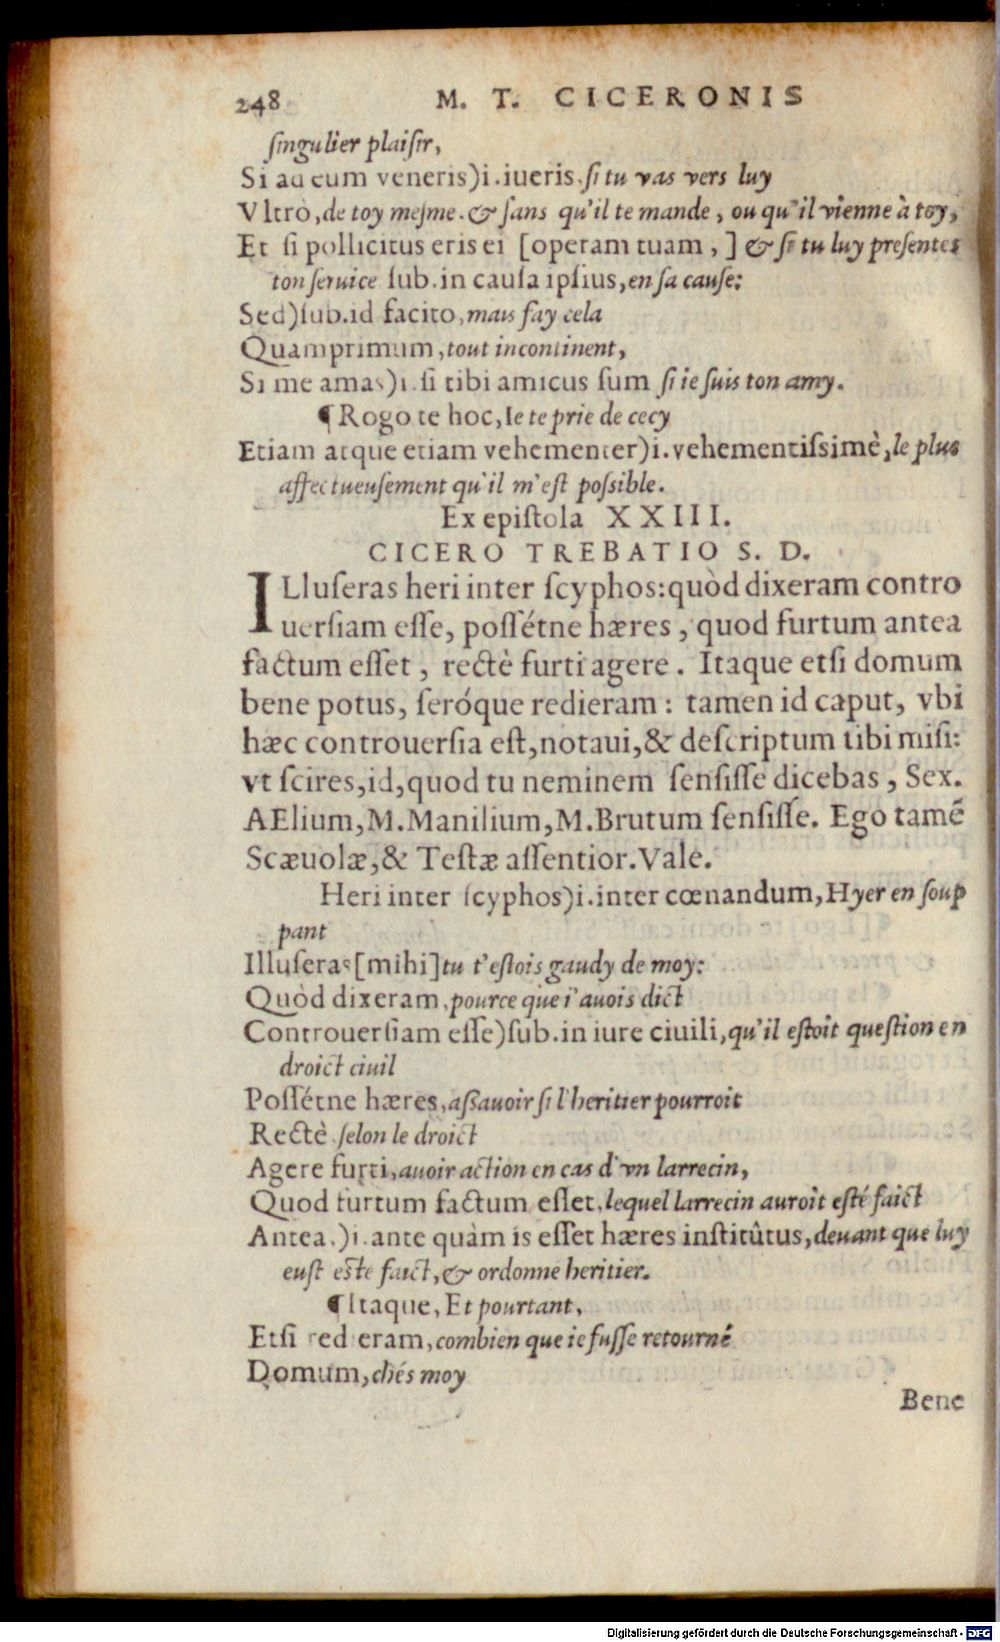 248 M. T. CICERONIS
ſingulier plaiſir,
Si ad eum veneris)i.iueris,ſi tu vas vers luy
Vltrò,de toy meſme.& ſans qu'il te mande, ou qu'il vienne à toy,
Et ſi pollicitus eris ei [operam tuam,] & ſi tu luy preſentes
ton ſeruice ſub.in cauſa ipſius,en ſa cauſe:
Sed)ſub.id facito,mais fay cela
Quamprimum,tout incontinent,
Si me amas)i.ſi tibi amicus ſum ſi ie ſuis ton amy.
¶Rogo te hoc,Ie te prie de cecy
Etiam atque etiam vehementer)i.vehementiſsimè,le plus
affectueuſement qu'il m'eſt poſsible.
Ex epiſtola XXIII.
CICERO TREBATIO S. D.
ILluſeras heri inter ſcyphos:quòd dixeram contro
uerſiam eſſe, poſſétne hæres, quod furtum antea
factum eſſet, rectè furti agere. Itaque etſi domum
bene potus, ſeróque redieram: tamen id caput, vbi
hæc controuerſia eſt,notaui,& deſcriptum tibi miſi:
vt ſcires,id,quod tu neminem ſenſiſſe dicebas, Sex.
AElium,M.Manilium,M.Brutum ſenſiſſe. Ego tamē
Scæuolæ,& Teſtæ aſſentior.Vale.
Heri inter ſcyphos)i.inter cœnandum,Hyer en ſoup
pant
Illuſeras[mihi]tu t'eſtois gaudy de moy:
Quòd dixeram,pource que i'auois dict
Controuerſiam eſſe)ſub.in iure ciuili,qu'il eſtoit queſtion en
droict ciuil
Poſſétne hæres,aſſauoir ſi l'heritier pourroit
Rectè,ſelon le droict
Agere furti,auoir action en cas d'vn larrecin,
Quod furtum factum eſſet,lequel larrecin auroit eſté faict
Antea.)i.ante quàm is eſſet hæres inſtitûtus,deuant que luy
euſt eſte faict,& ordonne heritier.
¶Itaque, Et pourtant,
Etſi redieram,combien que ie fuſſe retourné
Domum,chés moy
Bene
Digitalisierung gefördert durch die Deutsche Forschungsgemeinschaft - DFG